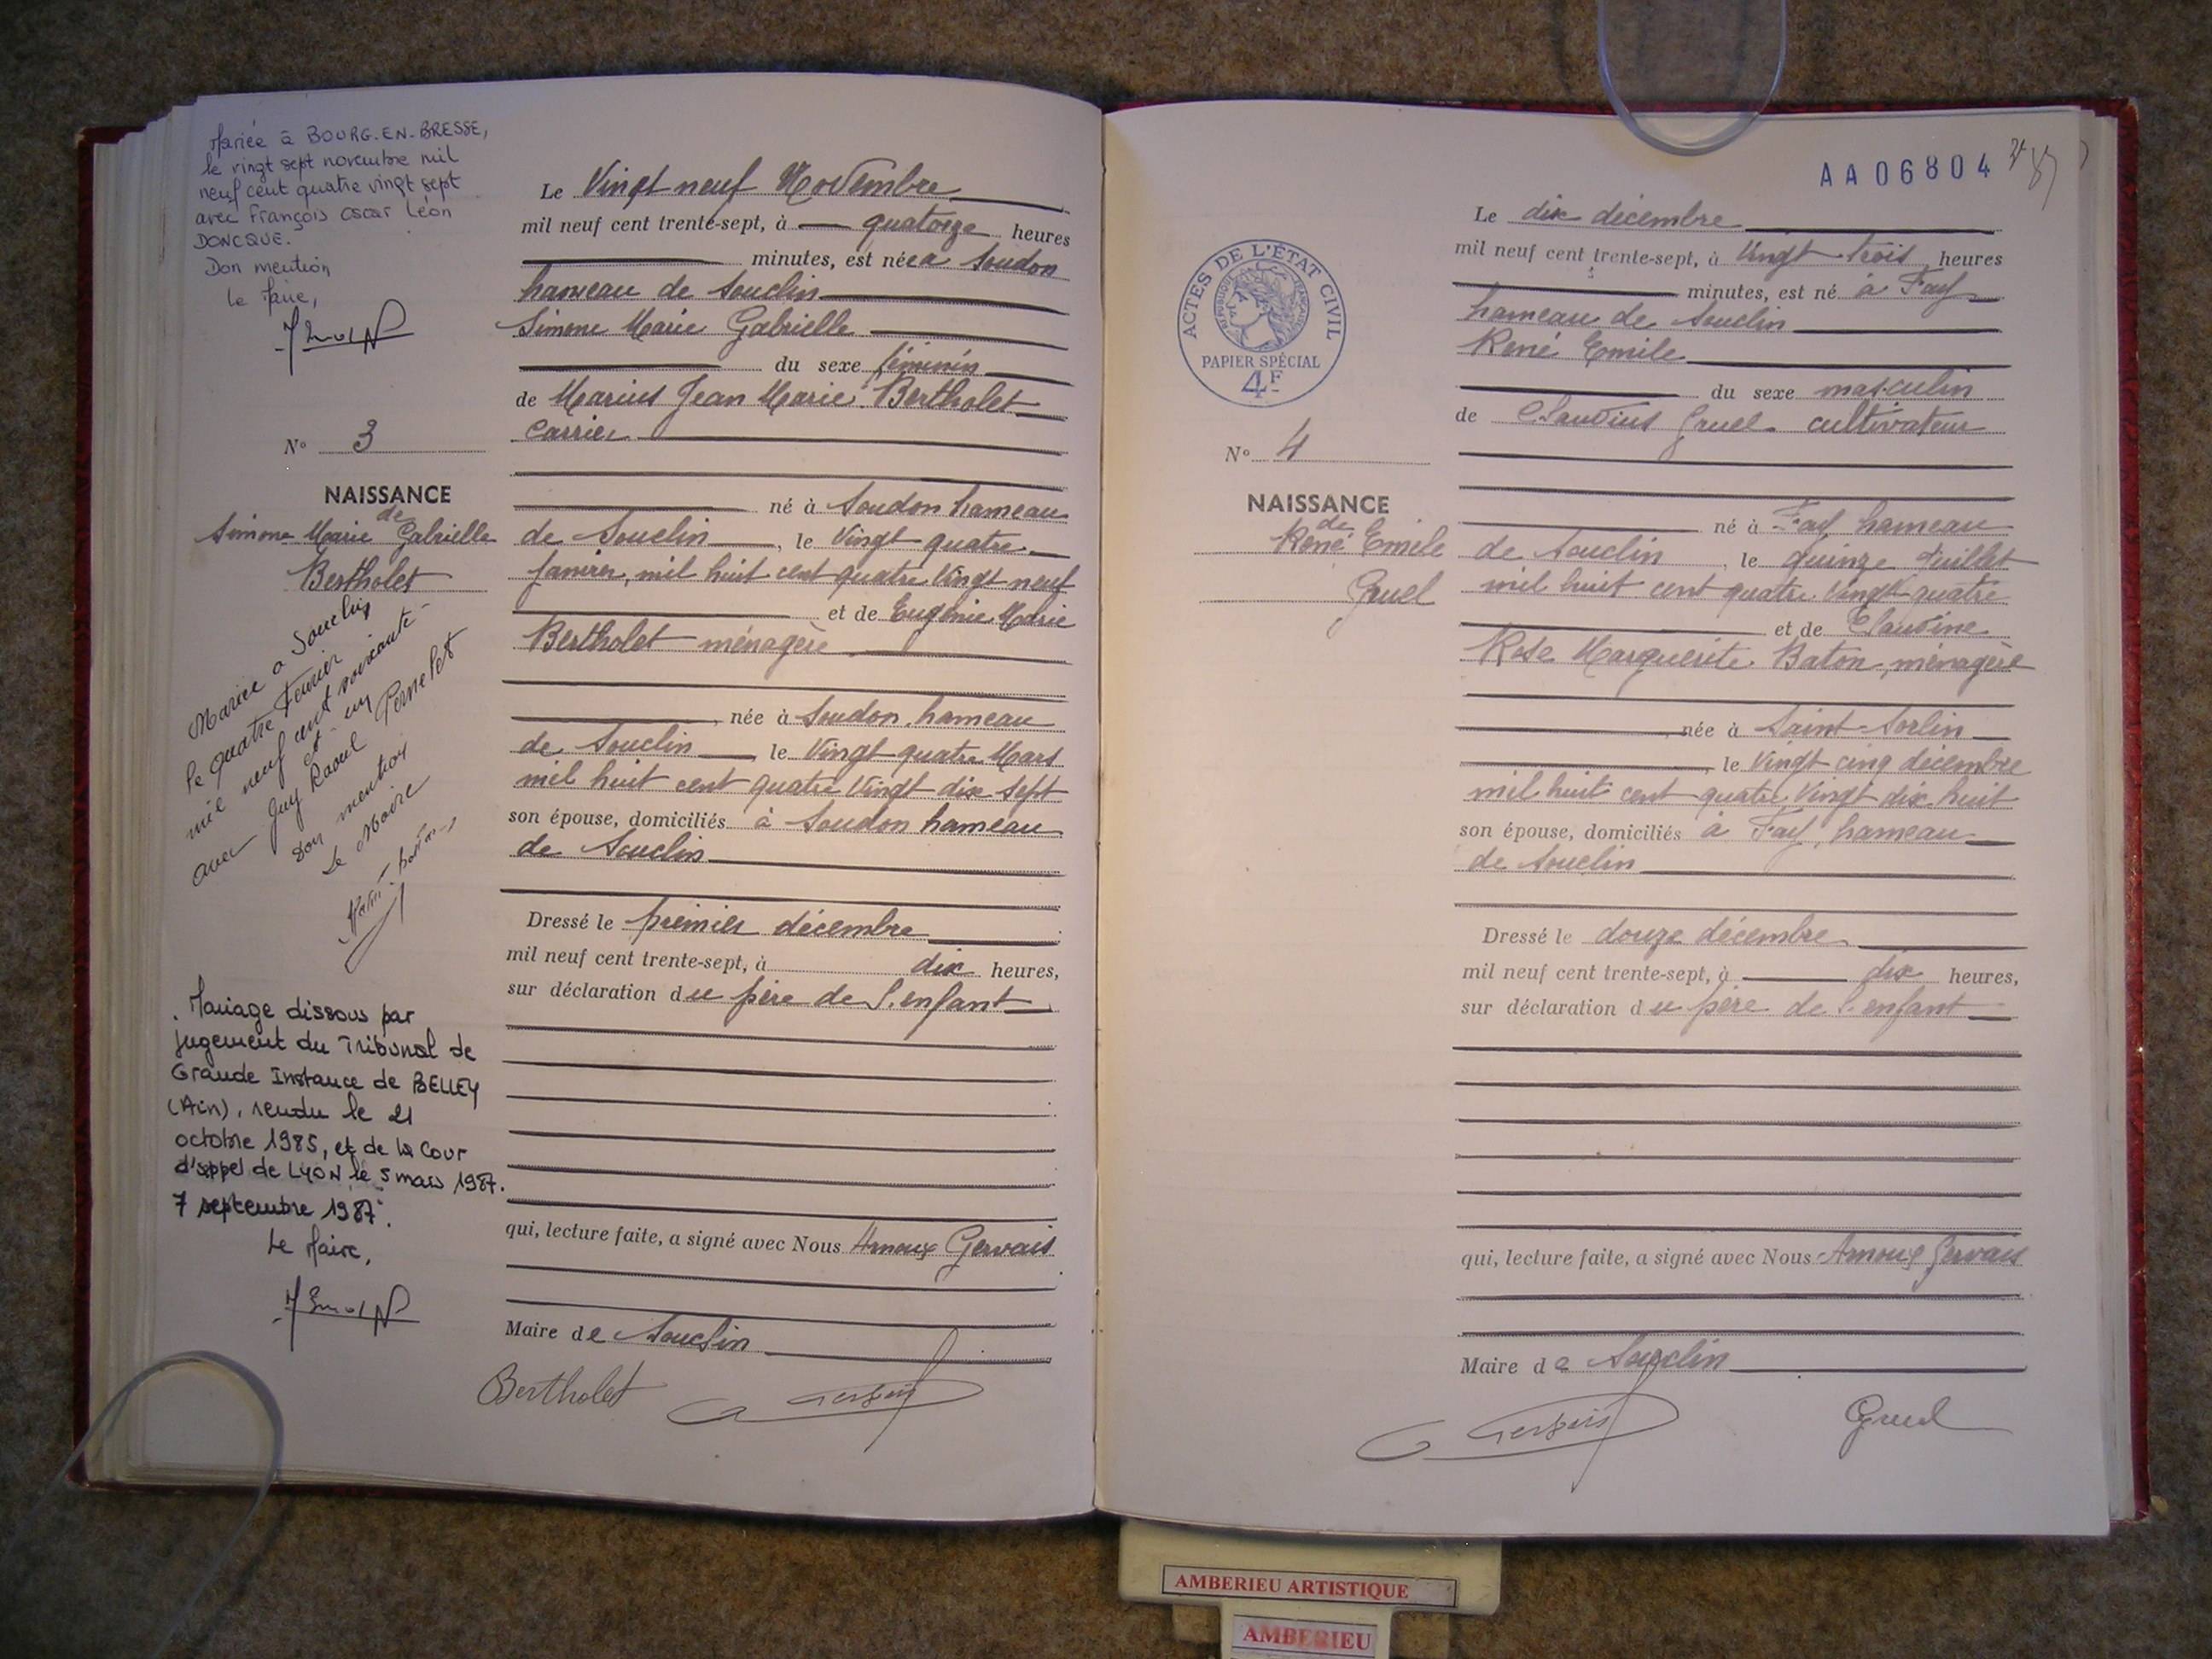 Mariée à BOURG-EN-BRESSE,
le vingt sept novembre mil
neuf cent quatre vingt sept
avec François Oscar Léon
DONCQUE.
Don mention
Le Maire,
N° 3
NAISSANCE
de
Simone Marie Gabrielle
Bertholet
Mariée à Souclin
le quatre Février
mil neuf cent soixante-
et - un
avec Guy Raoul Pernelet
Don mention
Le Maire
Mariage dissous par
jugement du Tribunal de
Grande Instance de BELLEY
(Ain), rendu le 21
octobre 1985, et de la Cour
d'appel de LYON le 5 mars 1987.
7 septembre 1987.
Le Maire,
Le Vingt neuf Novembre
mil neuf cent trente-sept, à quatorze heures
minutes, est née à Soudon
hameau de Souclin
Simone Marie Gabrielle
du sexe féminin
de Marius Jean Marie Bertholet
Carrier
né à Soudon hameau
de Souclin, le Vingt quatre
Janvier, mil huit cent quatre Vingt neuf
et de Eugénie Marie
Bertholet ménagère
, née à Soudon, hameau
de Souclin, le Vingt quatre Mars
mil huit cent quatre Vingt dix sept
son épouse, domiciliés à Soudon hameau
de Souclin
Dressé le premier décembre
mil neuf cent trente-sept, à dix heures,
sur déclaration du père de l'enfant
qui, lecture faite, a signé avec Nous Arnoux Gervais
Maire de Souclin
Bertholet Gervais
AA06804
87
ACTES DE L'ÉTAT CIVIL
RÉPUBLIQUE FRANÇAISE
PAPIER SPÉCIAL
4F
N° 4
NAISSANCE
de
René Emile
Gruel
Le dix décembre
mil neuf cent trente-sept, à Vingt trois heures
minutes, est né à Fay
hameau de Souclin
René Emile
du sexe masculin
de Claudius Gruel cultivateur
né à Fay hameau
de Souclin, le quinze Juillet
mil huit cent quatre Vingt quatre
et de Claudine
Rose Marguerite Baton, ménagère
, née à Saint-Sorlin
, le Vingt cinq décembre
mil huit cent quatre Vingt dix huit
son épouse, domiciliés à Fay, hameau
de Souclin
Dressé le douze décembre
mil neuf cent trente-sept, à dix heures,
sur déclaration du père de l'enfant
qui, lecture faite, a signé avec Nous Arnoux Gervais
Maire de Souclin
Gervais Gruel
AMBERIEU ARTISTIQUE
AMBERIEU